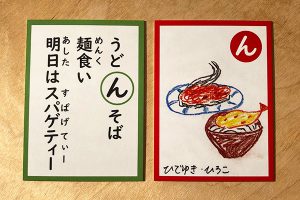 うどんそば
めんく
麺食い
あした すぱげてぃー
明日はスパゲティー
ん
ひでゆき・ひろこ